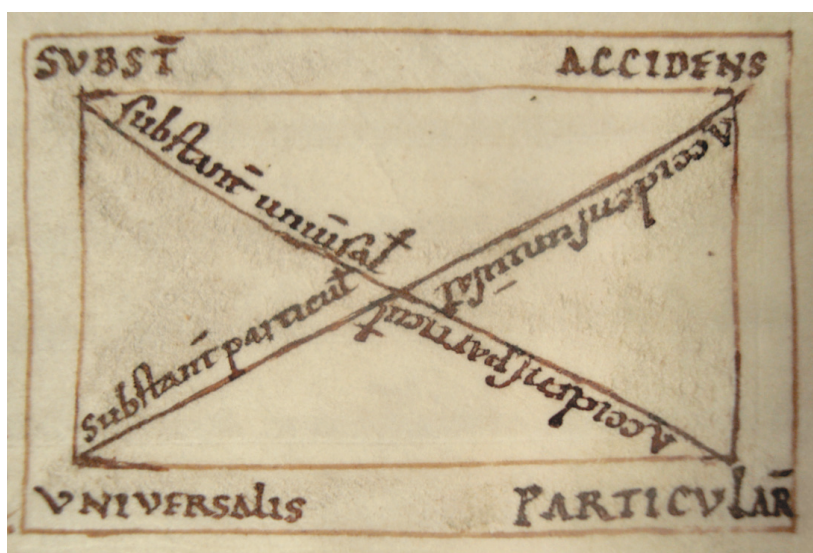 SVBST̄
ACCIDENS
substant̄ univ̄sal̵
Accidens univ̄sal̵
substant̄ particul̵
Accidens particul̵
VNIVERSALIS
PARTICVLAR̄